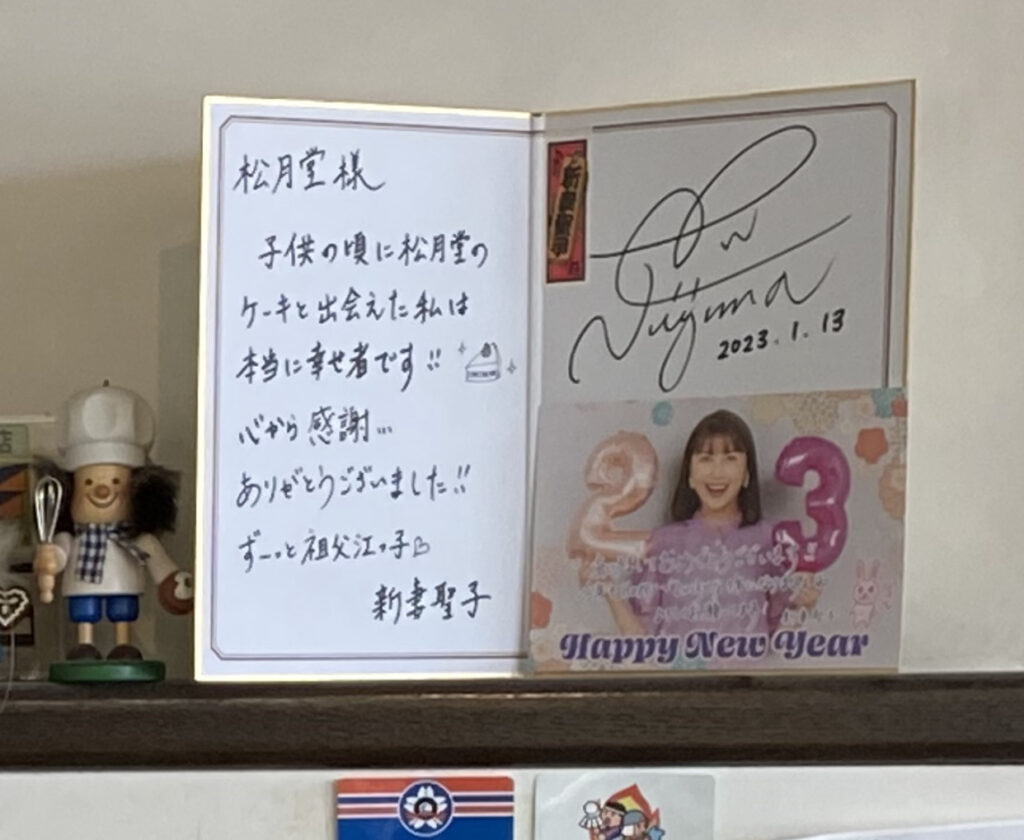 松月堂様
子供の頃に松月堂の
ケーキと出会えた私は
本当に幸せ者です!!
心から感謝…
ありがとうございました!!
ずーっと祖父江っ子♡
新妻聖子
新妻聖子
Niizuma
2023.1.13
2 3
Happy New Year
店